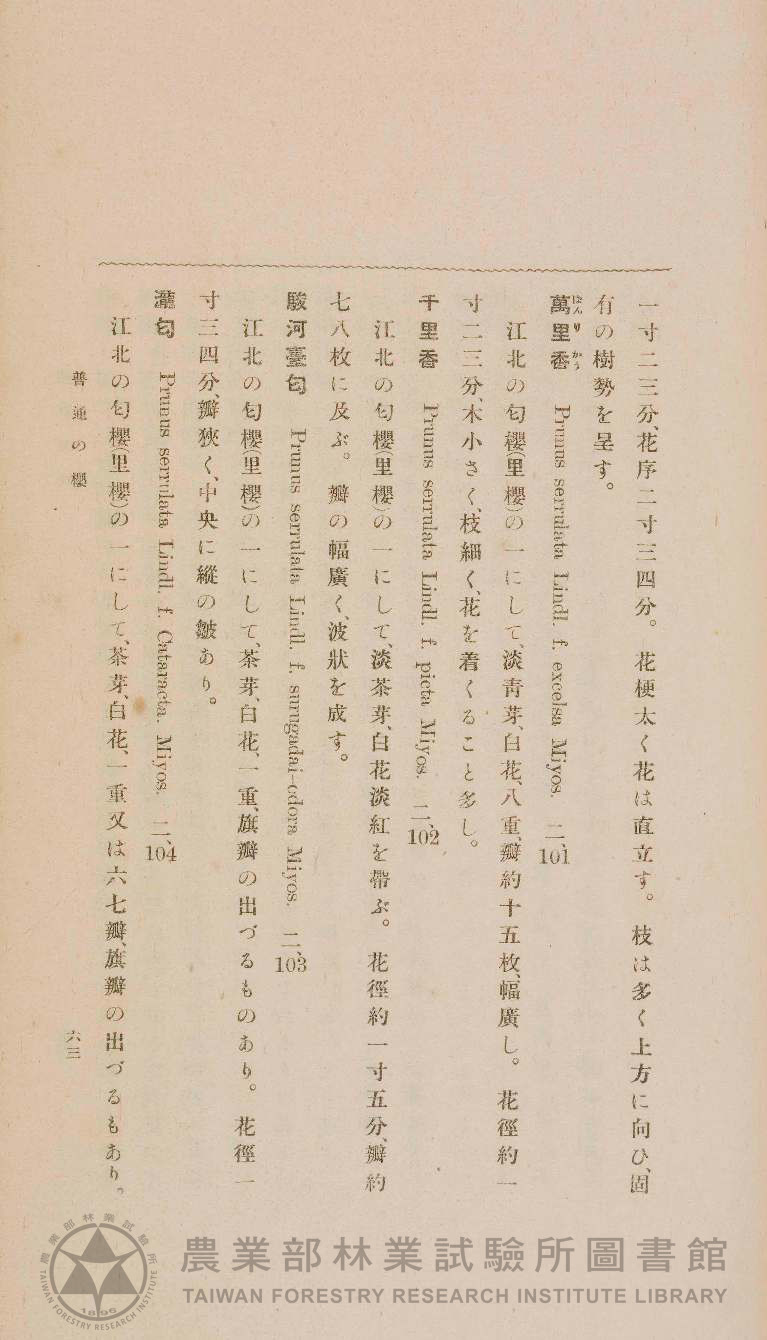 一寸二三分、花序二寸三四分。花梗太く花は直立す。枝は多く上方に向ひ、固
有の樹勢を呈す。
萬里香 Prunus serrulata Lindl. f. excelsa Miyos. 二、101
ばんりかう
江北の匂櫻(里櫻)の一にして、淡青芽、白花、八重、瓣約十五枚、幅廣し。花徑約一
寸二三分、木小さく、枝細く、花を着くること多し。
千里香 Prunus serrulata Lindl. f. picta Miyos. 二、102
江北の匂櫻(里櫻)の一にして、淡茶芽、白花淡紅を帶ぶ。花徑約一寸五分、瓣約
七八枚に及ぶ。瓣の幅廣く、波狀を成す。
駿河臺匂 Prunus serrulata Lindl. f. surugadai-odora Miyos. 二、103
江北の匂櫻(里櫻)の一にして、茶芽、白花、一重、旗瓣の出づるものあり。花徑一
寸三四分、瓣狹く、中央に縱の皺あり。
瀧匂 Prunus serrulata Lindl. f. Cataracta. Miyos. 二、104
江北の匂櫻(里櫻)の一にして、茶芽、白花、一重又は六七瓣、旗瓣の出づるもあり。
普通の櫻
六三
農業部林業試驗所
TAIWAN FORESTRY RESEARCH INSTITUTE
1896
農業部林業試驗所圖書館
TAIWAN FORESTRY RESEARCH INSTITUTE LIBRARY